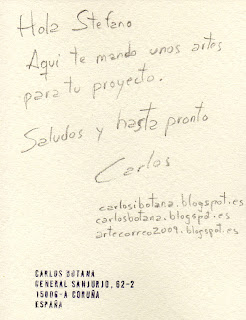 Hola Stefano
Aquí te mando unos artes
para tu proyecto.
Saludos y hasta pronto
Carlos
carlosibotana.blogspot.es
carlosbotana.blogspot.es
artecorreo2009.blogspot.es
CARLOS BOTANA
GENERAL SANJURJO, 62-2
15006-A CORUÑA
ESPAÑA